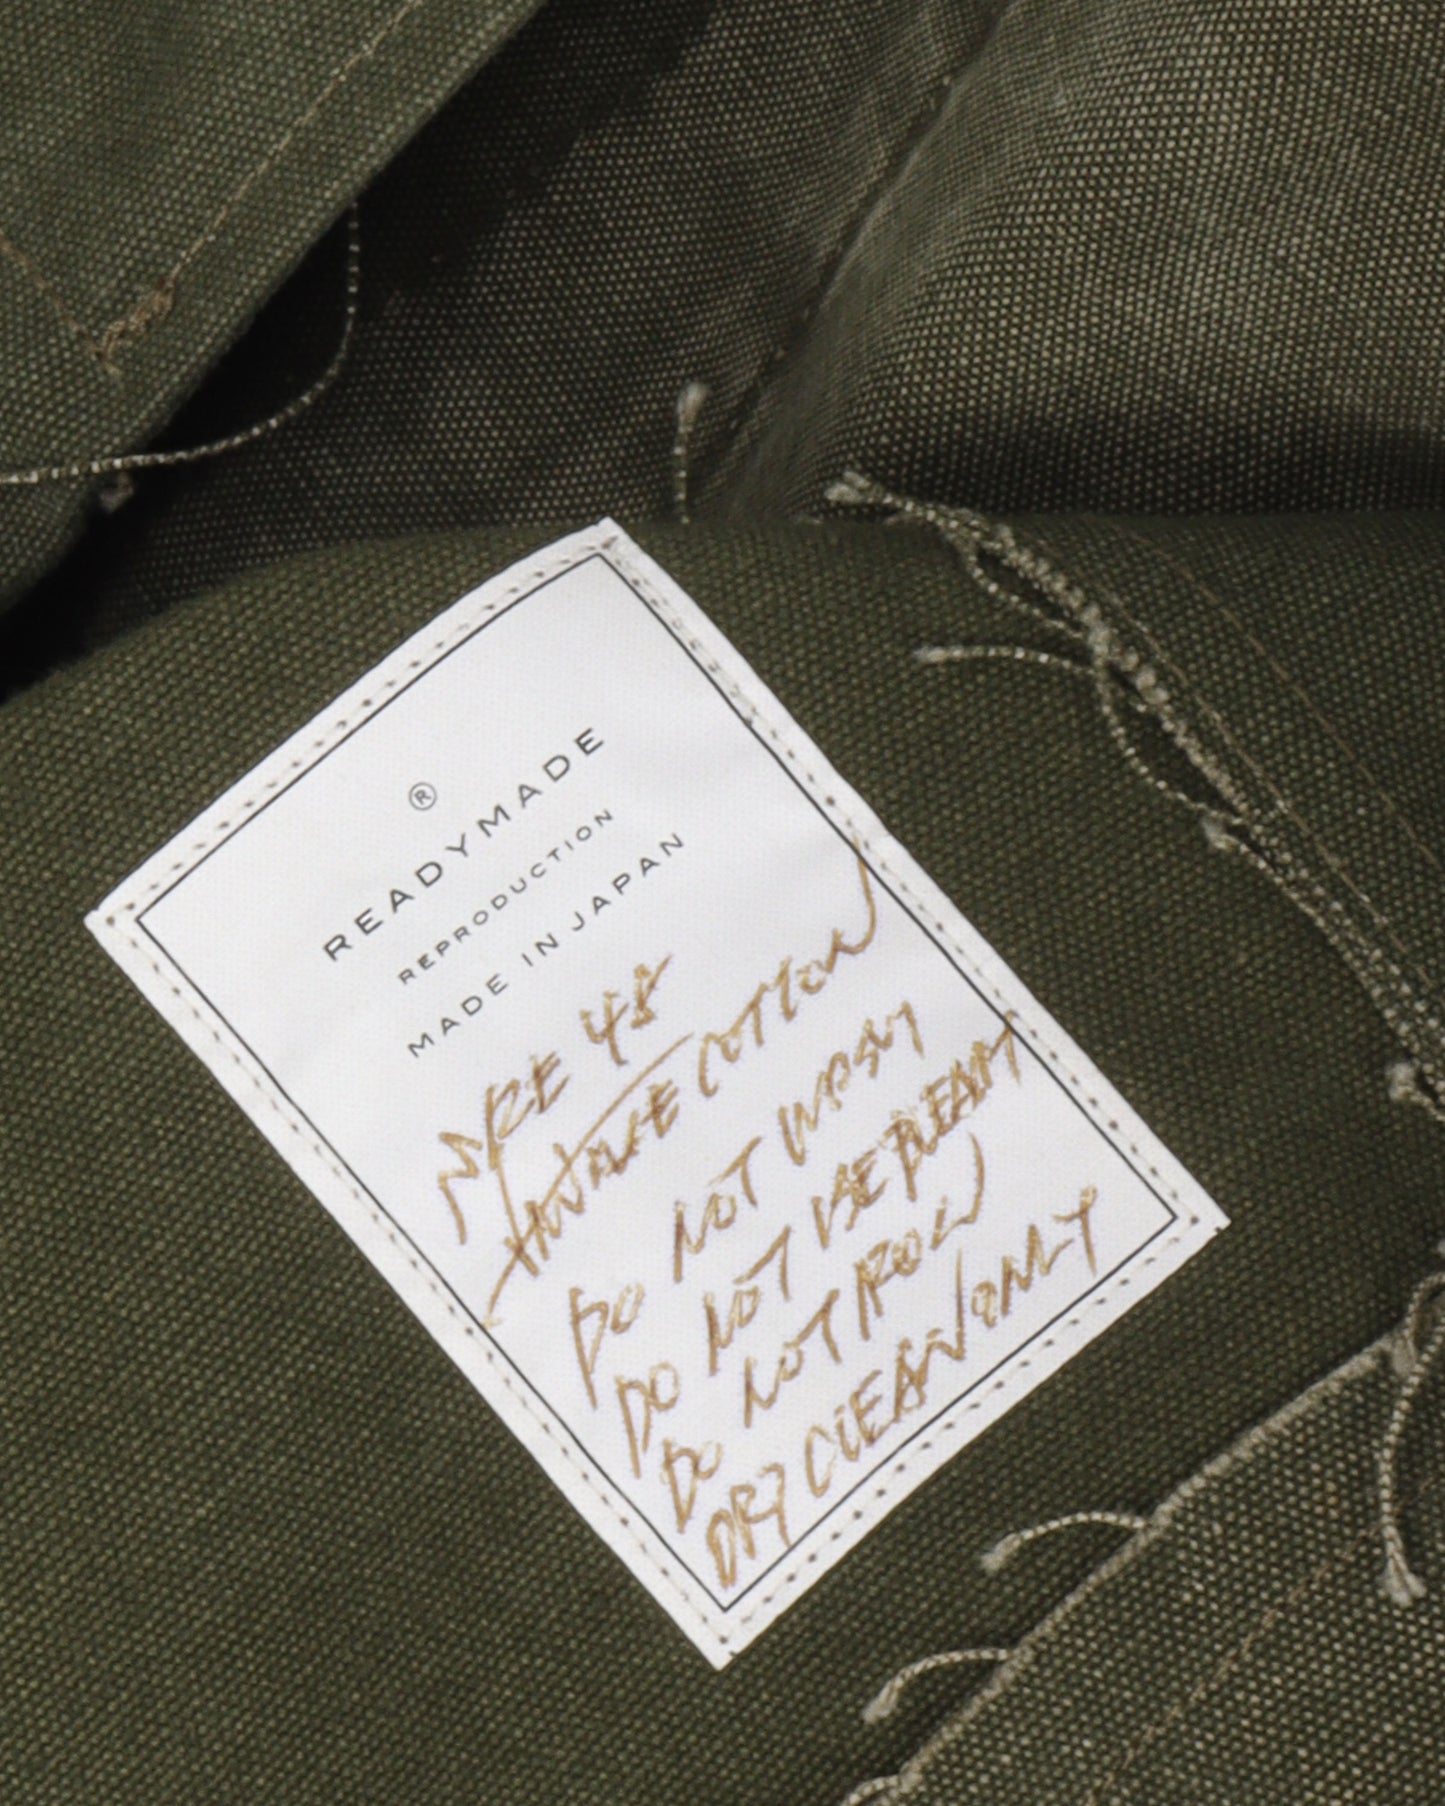 ®
READYMADE
REPRODUCTION
MADE IN JAPAN
SIZE 48
COTTON
DO NOT WASH
DO NOT USE BLEACH
DO NOT IRON
DRY CLEAN ONLY